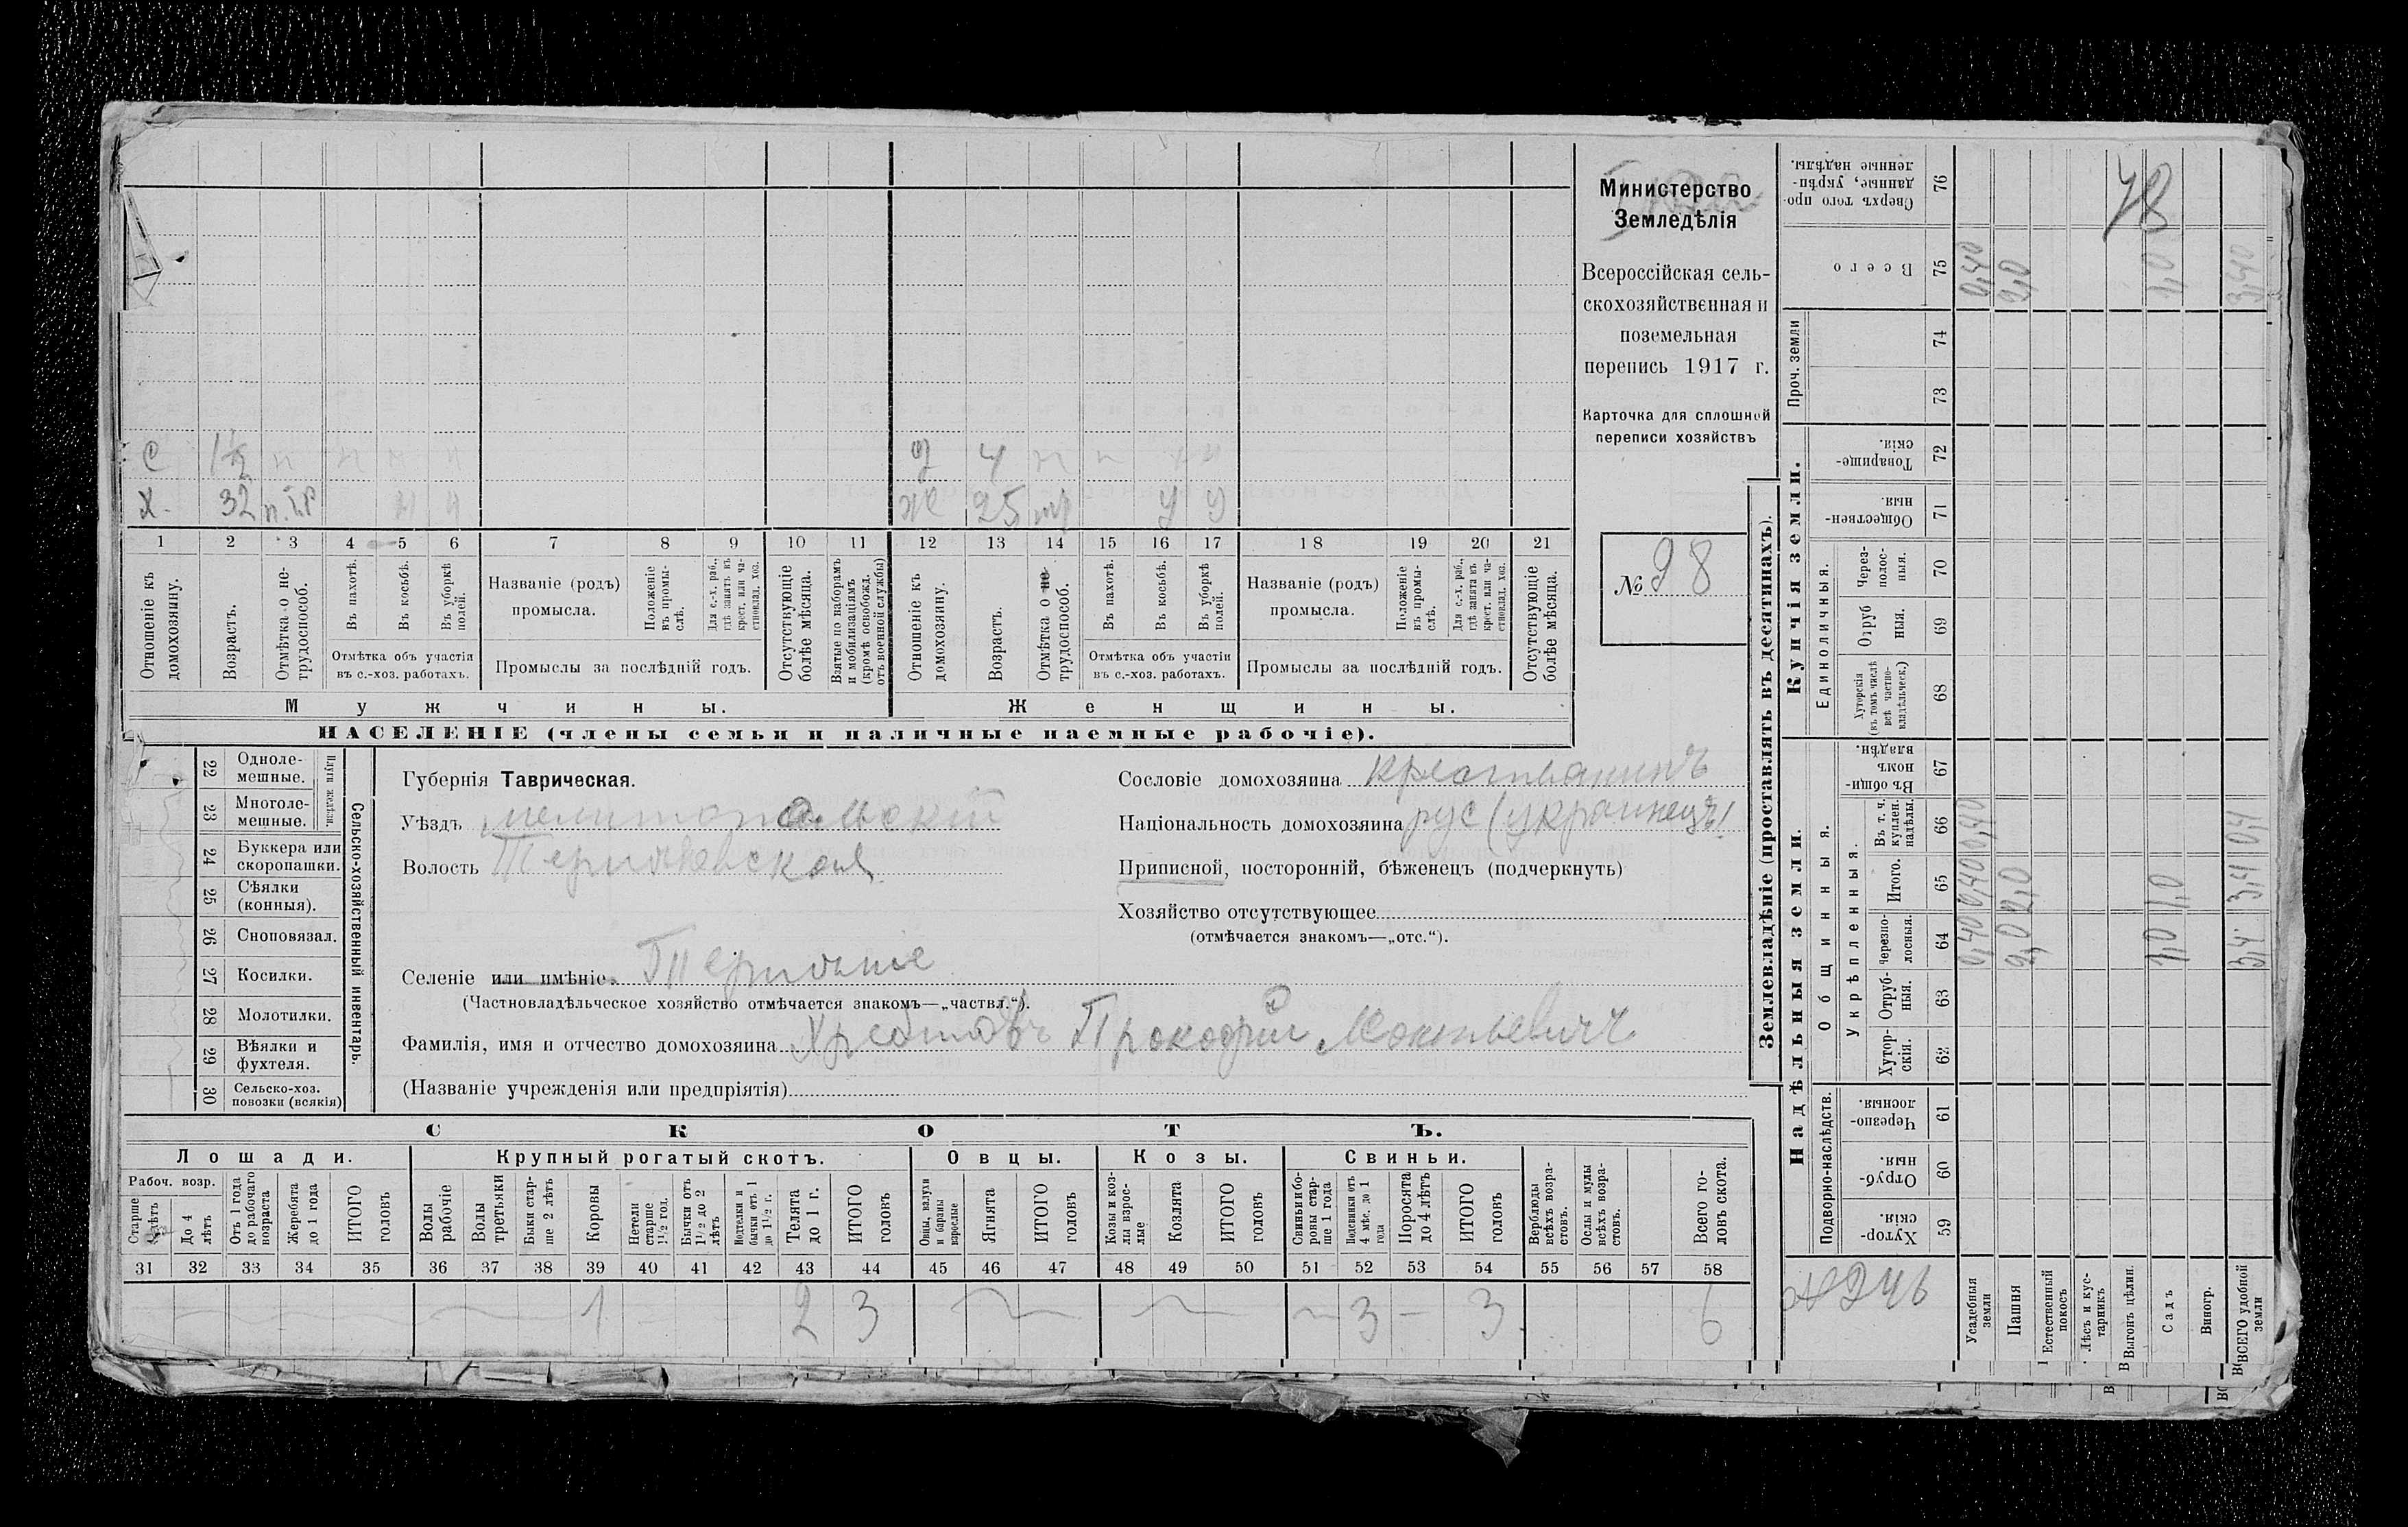 С 1½ н н н н
Х 32 п.т.р н н
д 4 н н н н
ж 25 у у
1 2 3 4 5 6 7 8 9 10 11 12 13 14 15 16 17 18 19 20 21
Отношеніе къ домохозяину.
Возрастъ.
Отмѣтка о не-
трудоспособ.
Въ пахотѣ.
Въ косьбѣ.
Въ уборкѣ полей.
Отмѣтка объ участіи
въ с.-хоз. работахъ.
Названіе (родъ)
промысла.
Положеніе въ промы-
слѣ.
Для с.-х. раб., гдѣ занятъ въ крест. или ча-
стновлад. хоз.
Промыслы за послѣдній годъ.
Отсутствующіе болѣе мѣсяца.
Взятые по наборамъ и мобилизаціямъ (кромѣ освобожд. отъ военной службы)
Отношеніе къ домохозяину.
Возрастъ.
Отмѣтка о не-
трудоспособ.
Въ пахотѣ.
Въ косьбѣ.
Въ уборкѣ полей.
Отмѣтка объ участіи
въ с.-хоз. работахъ.
Названіе (родъ)
промысла.
Положеніе въ промы-
слѣ.
Для с.-х. раб., гдѣ занятъ въ крест. или ча-
стновлад. хоз.
Промыслы за послѣдній годъ.
Отсутствующіе болѣе мѣсяца.
Мужчины.
Женщины.
НАСЕЛЕНІЕ (члены семьи и наличные наемные рабочіе).
Министерство
Земледѣлія
Всероссійская сель-
скохозяйственная и
поземельная
перепись 1917 г.
Карточка для сплошной
переписи хозяйствъ
№ 98
22 Одноле-
мешные.
23 Многоле-
мешные.
Плуги желѣзн.
24 Буккера или
скоропашки.
25 Сѣялки
(конныя).
26 Сноповязал.
27 Косилки.
28 Молотилки.
29 Вѣялки и
фухтеля.
30 Сельско-хоз.
повозки (всякія)
Сельско-хозяйственный инвентарь.
Губернія Таврическая.
Уѣздъ мелитопольскій
Волость Терпѣньевская
Селеніе или имѣніе. Терпѣніе
(Частновладѣльческое хозяйство отмѣчается знакомъ—„частвл.“).
Фамилія, имя и отчество домохозяина Прокофій
(Названіе учрежденія или предпріятія)
Сословіе домохозяина крестьянинъ
Національность домохозяина рус (украинецъ)
Приписной, посторонній, бѣженецъ (подчеркнуть)
Хозяйство отсутствующее
(отмѣчается знакомъ—„отс.“).
СКОТЪ.
Лошади.
Рабоч. возр.
Старше 4 лѣтъ
До 4 лѣтъ
Отъ 1 года до рабочаго возраста
Жеребята до 1 года
ИТОГО головъ
Крупный рогатый скотъ.
Волы рабочіе
Волы третьяки
Быки стар-
ше 2 лѣтъ
Коровы
Нетели старше 1½ год.
Бычки отъ 1½ до 2 лѣтъ
Подтелки и бычки отъ 1 до 1½ г.
Телята до 1 г.
ИТОГО головъ
Овцы.
Овцы, валухи и бараны взрослые
Ягнята
ИТОГО головъ
Козы.
Козы и коз-
лы взрос-
лые
Козлята
ИТОГО головъ
Свиньи.
Свиньи и бо-
ровы стар-
ше 1 года
Подсвинки отъ 4 мѣс. до 1 года
Поросята до 4 лѣтъ
ИТОГО головъ
Верблюды всѣхъ возра-
стовъ.
Ослы и мулы всѣхъ возра-
стовъ.
Всего го-
ловъ скота.
31 32 33 34 35 36 37 38 39 40 41 42 43 44 45 46 47 48 49 50 51 52 53 54 55 56 57 58
1 2 3 3 — 3 6
Землевладѣніе (проставлять въ десятинахъ).
Надѣльныя земли.
Купчія земли.
Проч. земли
Подворно-наслѣдств.
Общинныя.
Укрѣпленныя.
Единоличныя.
Хутор-
скія. 59
Отруб-
ныя. 60
Черезпо-
лосныя. 61
Хутор-
скія. 62
Отруб-
ныя. 63
Черезпо-
лосныя. 64
Итого. 65
Въ т. ч. куплен. надѣлы. 66
Въ общин-
номъ владѣн. 67
Хуторскія (въ томъ числѣ всѣ частно-
владѣльческ.) 68
Отруб
ныя. 69
Через-
полос-
ныя. 70
Обществен-
ныя. 71
Товарище-
скія. 72
73
74
Всего 75
Сверхъ того про-
данные, укрѣп-
ленные надѣлы. 76
78
Усадебныя земли 0,40 0,40 0,40 0,40
Пашня 2,0 2,0 2,0
Естественный покосъ
Лѣсъ и кус-
тарникъ
Выгонъ цѣлин.
Садъ 1,0 1,0 1,0
Виногр.
ВСЕГО удобной земли 3,4 3,4 0,4 3,40